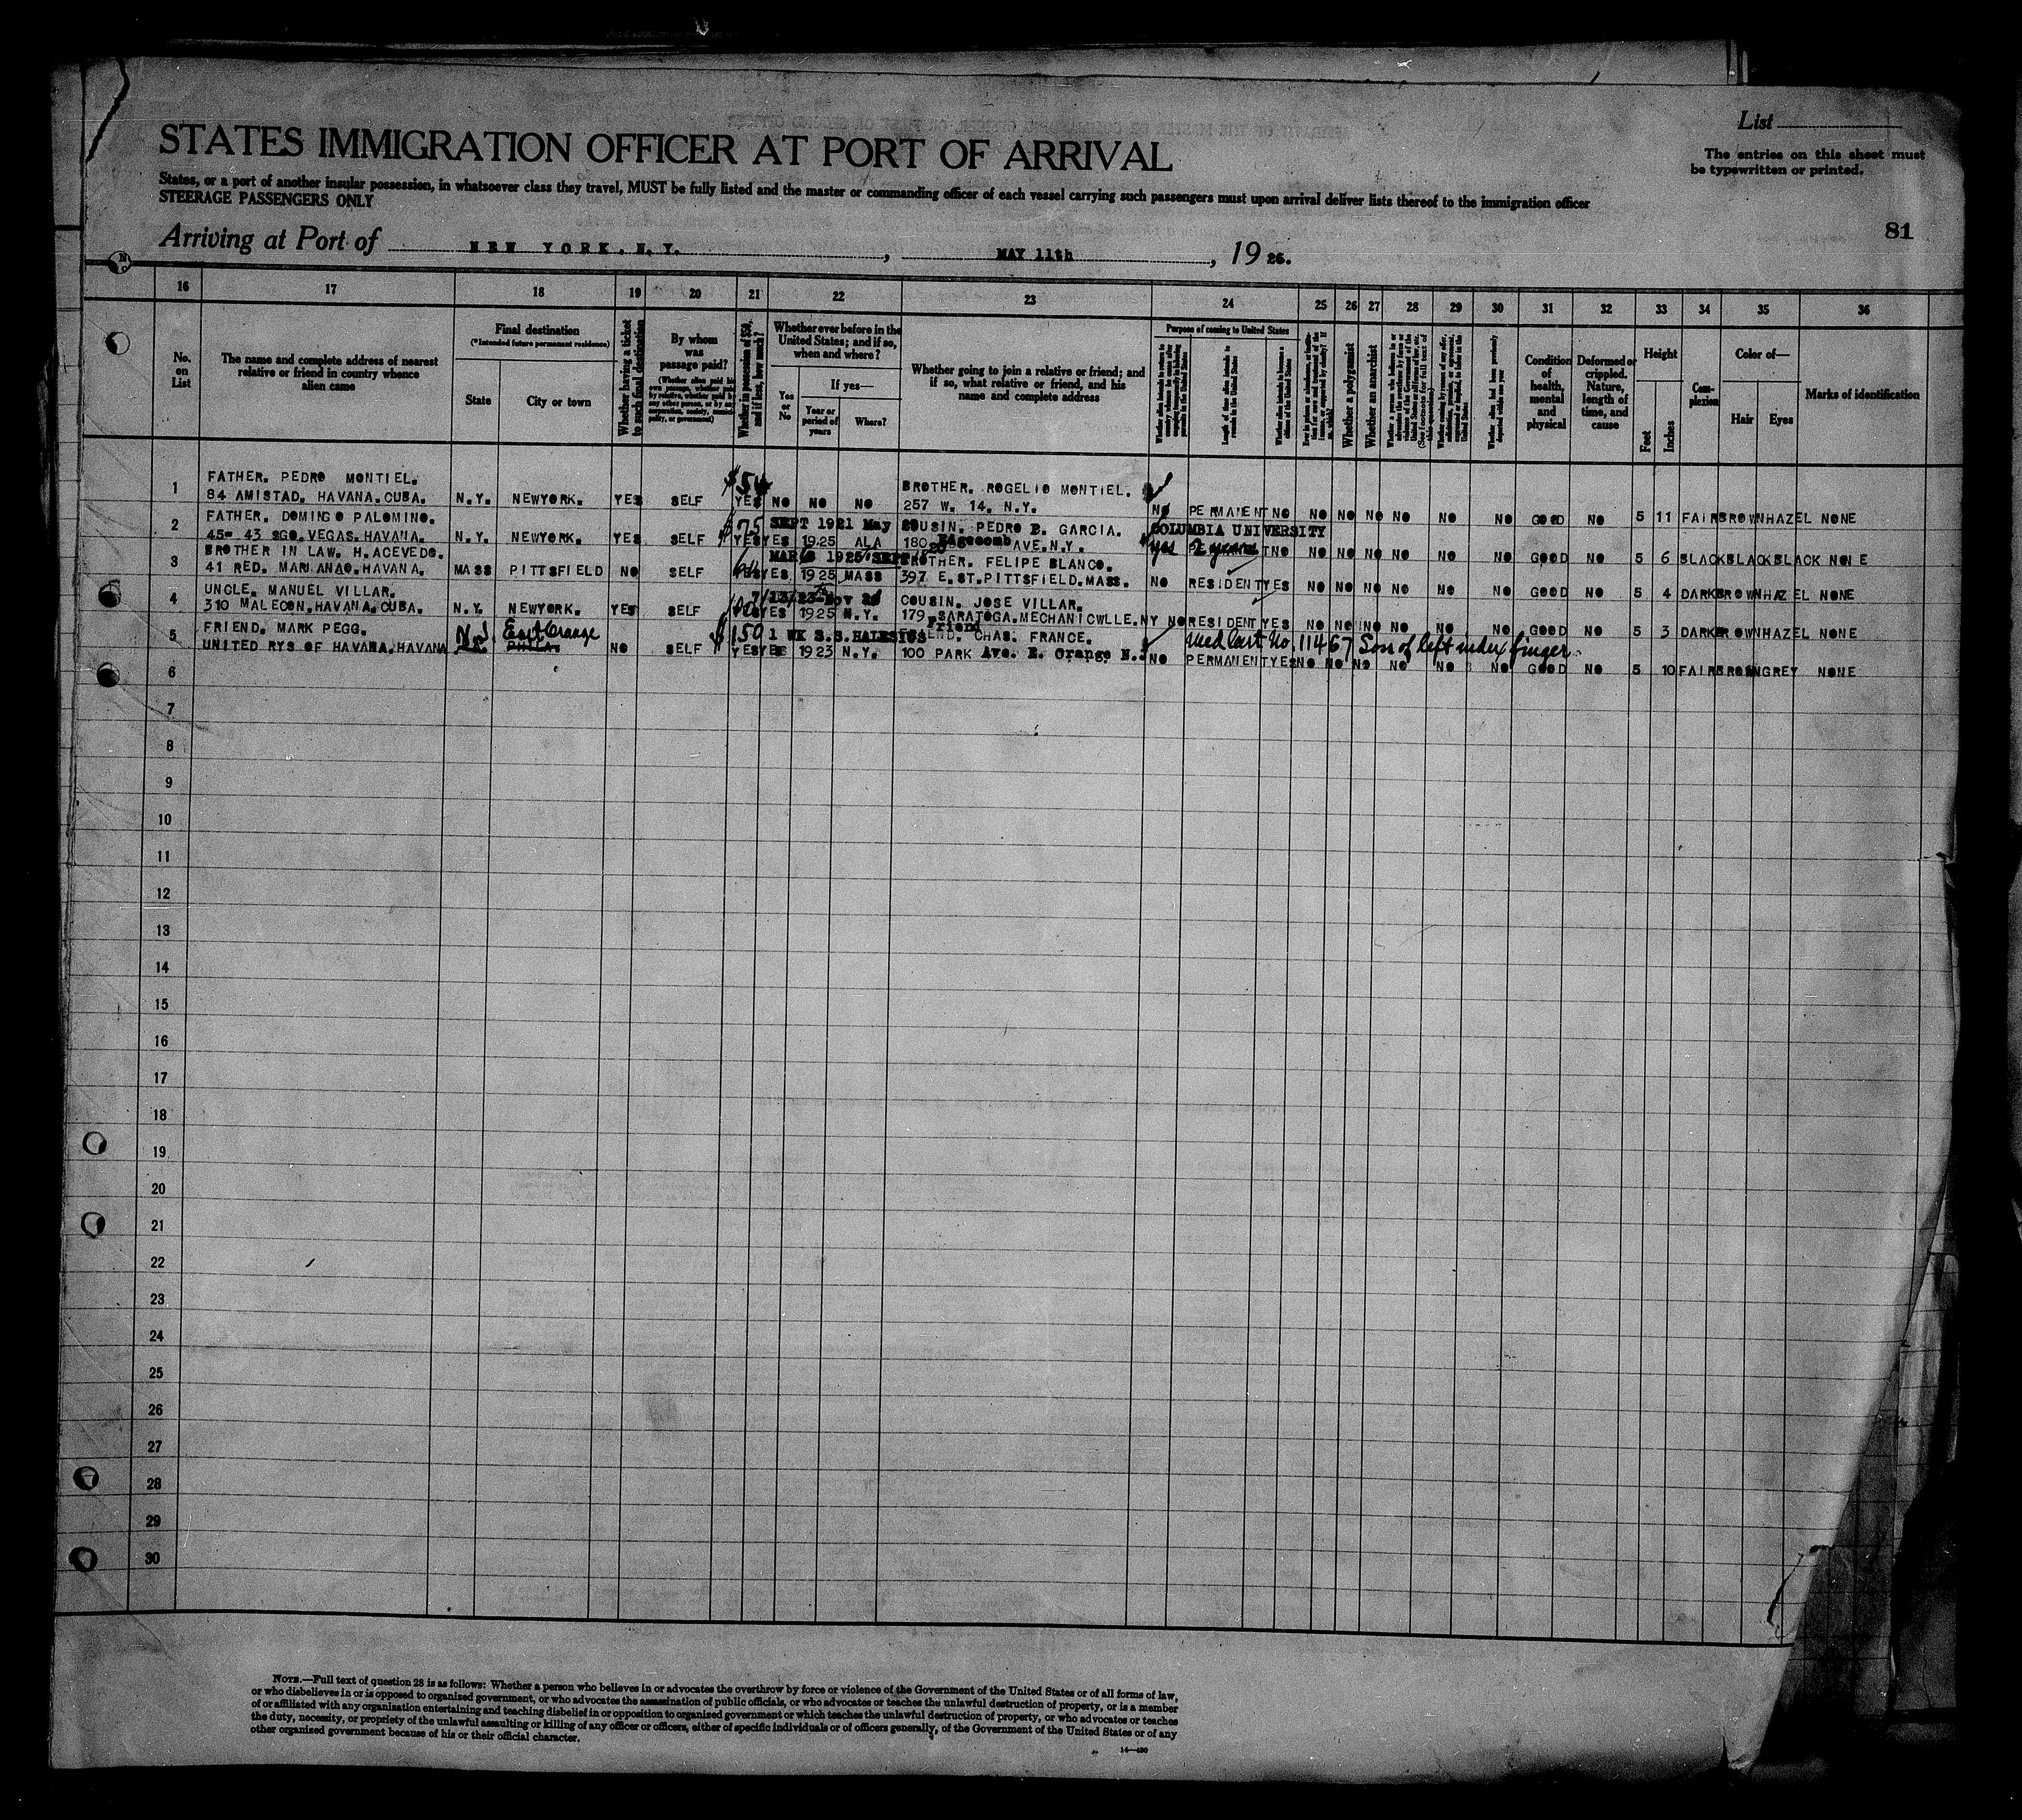 List
The entries on this sheet must
be typewritten or printed.
STATES IMMIGRATION OFFICER AT PORT OF ARRIVAL
States, or a port of another insular possession, in whatsoever class they travel, MUST be fully listed and the master or commanding officer of each vessel carrying such passengers must upon arrival deliver lists thereof to the immigration officer
STEERAGE PASSENGERS ONLY
81
Arriving at Port of NEW YORK. N.Y., MAY 11th, 1926.
16 17 18 19 20 21 22 23 24 25 26 27 28 29 30 31 32 33 34 35 36
No. on List
The name and complete address of nearest relative or friend in country whence alien came
Final destination
(*Intended future permanent residence)
State
City or town
Whether having a ticket to such final destination
By whom was passage paid?
Whether in possession of $50, and if less, how much?
Whether ever before in the United States; and if so, when and where?
Yes or No
If yes—
Year or period of years
Where?
Whether going to join a relative or friend; and if so, what relative or friend, and his name and complete address
Purpose of coming to United States
Length of time alien intends to remain in the United States
Whether a polygamist
Whether an anarchist
Condition of health, mental and physical
Deformed or crippled. Nature, length of time, and cause
Height
Feet
Inches
Complexion
Color of—
Hair
Eyes
Marks of identification
$54
1 FATHER. PEDRO MONTIEL. BROTHER. ROGELIO MONTIEL.
84 AMISTAD. HAVANA.CUBA. N.Y. NEWYORK. YES SELF YES NO NO NO 257 W. 14. N.Y. NO PERMANENT NO NO NO NO NO NO NO GOOD NO 5 11 FAIR BROWN HAZEL NONE
2 FATHER. DOMINGO PALOMINO. $75 SEPT 1921 May COUSIN. PEDRO E. GARCIA. COLUMBIA UNIVERSITY
45= 43 SGO.VEGAS.HAVANA. N.Y. NEWYORK. YES SELF YES YES 1925 ALA 180 Edgecomb AVE.N.Y. yes 2 years NO NO NO NO NO NO NO GOOD NO 5 6 BLACK BLACK BLACK NONE
3 BROTHER IN LAW. H.ACEVEDO. MAR 1925/SEPT BROTHER. FELIPE BLANCO.
41 RED. MARIANAO.HAVANA. MASS PITTSFIELD NO SELF YES YES 1925 MASS 397 E.ST.PITTSFIELD.MASS. NO RESIDENT YES NO NO NO NO NO NO GOOD NO 5 4 DARK BROWN HAZEL NONE
4 UNCLE. MANUEL VILLAR. COUSIN. JOSE VILLAR.
310 MALECON.HAVANA.CUBA. N.Y. NEWYORK. YES SELF 100 YES 1925 N.Y. 179 SARATOGA.MECHANICVLLE.NY NO RESIDENT YES NO NO NO NO NO NO GOOD NO 5 3 DARK BROWN HAZEL NONE
5 FRIEND. MARK PEGG. N.J. East Orange $150 1 WK S.S. Friend CHAS. FRANCE. Med Cert No. 11467 of left index finger
UNITED RYS OF HAVANA.HAVANA NO SELF YES YES 1923 N.Y. 100 PARK Ave. E. Orange N.J. NO PERMANENT YES NO NO NO NO NO NO GOOD NO 5 10 FAIR BROWN GREY NONE
6
7
8
9
10
11
12
13
14
15
16
17
18
19
20
21
22
23
24
25
26
27
28
29
30
NOTE.—Full text of question 28 is as follows: Whether a person who believes in or advocates the overthrow by force or violence of the Government of the United States or of all forms of law,
or who disbelieves in or is opposed to organized government, or who advocates the assassination of public officials, or who advocates or teaches the unlawful destruction of property, or is a member
of or affiliated with any organization entertaining and teaching disbelief in or opposition to organized government or which teaches the unlawful destruction of property, or who advocates or teaches
the duty, necessity, or propriety of the unlawful assaulting or killing of any officer or officers, either of specific individuals or of officers generally, of the Government of the United States or of any
other organized government because of his or their official character.
14—430